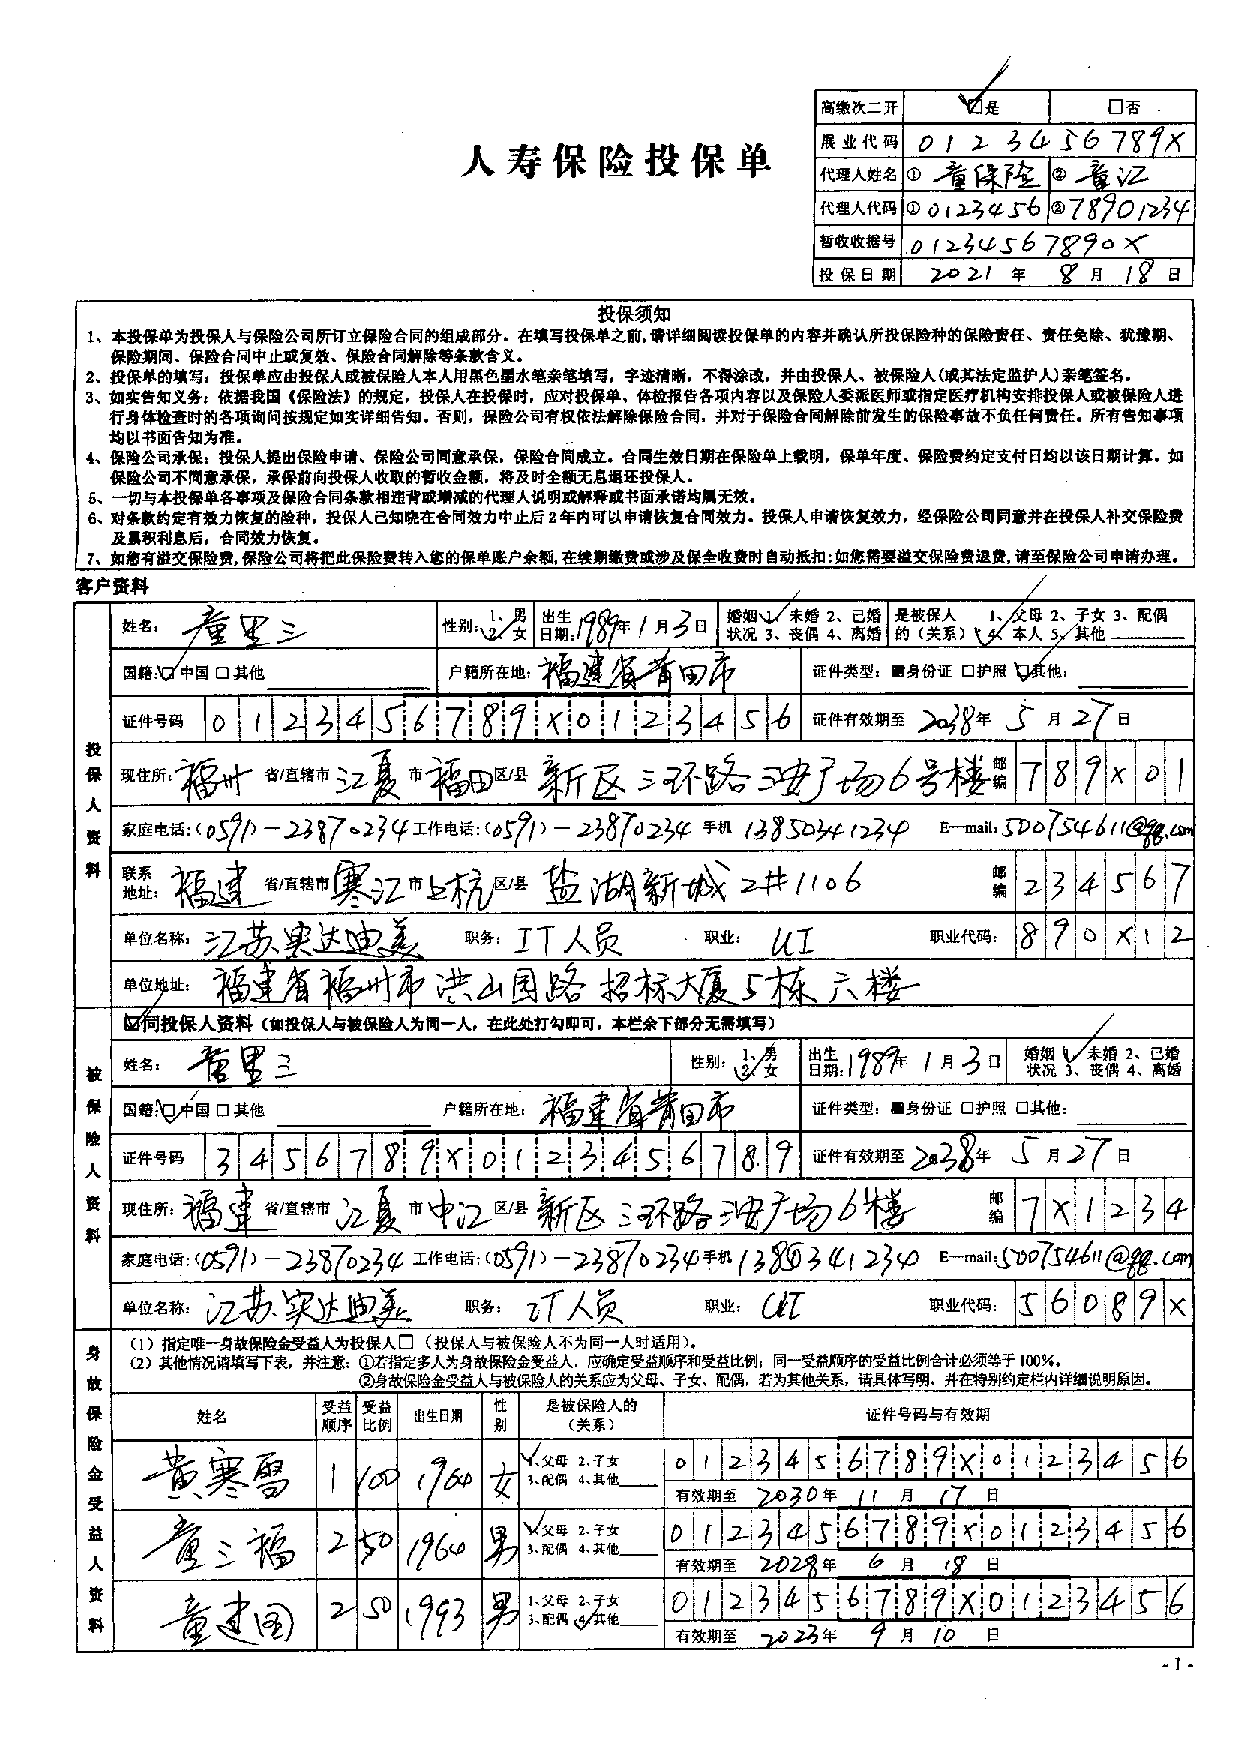 高缴次二开 ☑是 □否
展业代码 0123456789X
人寿保险投保单
代理人姓名 ① 童保险 ② 童江
代理人代码 ① 0123456 ② 78901234
暂收收据号 01234567890X
投保日期 2021年 8月 18日
投保须知
1、本投保单为投保人与保险公司所订立保险合同的组成部分。在填写投保单之前,请详细阅读投保单的内容并确认所投保险种的保险责任、责任免除、犹豫期、
保险期间、保险合同中止或复效、保险合同解除等条款含义。
2、投保单的填写：投保单应由投保人或被保险人本人用黑色墨水笔亲笔填写，字迹清晰，不得涂改，并由投保人、被保险人(或其法定监护人)亲笔签名。
3、如实告知义务：依据我国《保险法》的规定，投保人在投保时，应对投保单、体检报告各项内容以及保险人委派医师或指定医疗机构安排投保人或被保险人进
行身体检查时的各项询问按规定如实详细告知。否则，保险公司有权依法解除保险合同，并对于保险合同解除前发生的保险事故不负任何责任。所有告知事项
均以书面告知为准。
4、保险公司承保：投保人提出保险申请、保险公司同意承保，保险合同成立。合同生效日期在保险单上载明，保单年度、保险费约定支付日均以该日期计算。如
保险公司不同意承保，承保前向投保人收取的暂收金额，将及时全额无息退还投保人。
5、一切与本投保单各事项及保险合同条款相违背或增减的代理人说明或解释或书面承诺均属无效。
6、对条款约定有效力恢复的险种，投保人已知晓在合同效力中止后2年内可以申请恢复合同效力。投保人申请恢复效力，经保险公司同意并在投保人补交保险费
及累积利息后，合同效力恢复。
7、如您有溢交保险费,保险公司将把此保险费转入您的保单账户余额,在续期缴费或涉及保全收费时自动抵扣;如您需要溢交保险费退费,请至保险公司申请办理。
客户资料
投保人资料
姓名：童里三 性别：1、男 2、女 出生日期：1989年1月3日 婚姻状况 1、未婚 2、已婚 3、丧偶 4、离婚 是被保人的（关系） 1、父母 2、子女 3、配偶 4、本人 5、其他
国籍：□中国 □其他 户籍所在地：福建省莆田市 证件类型：■身份证 □护照 □其他：
证件号码 0123456789X0123456 证件有效期至 2038年 5月 27日
现住所：福州 省/直辖市 江夏 市 福田 区/县 新区三环路 广场6号楼 邮编 789X01
家庭电话：（0591）－23870234 工作电话：（0591）－23870234 手机 13850341234 E—mail：500754611@qq.com
联系地址：福建 省/直辖市 寒江 市 上杭 区/县 盐湖新城2#1106 邮编 234567
单位名称：江苏实达迪美 职务：IT人员 职业：UI 职业代码：890X12
单位地址：福建省福州市洪山园路招标大厦5栋六楼
被保险人资料
☑同投保人资料（如投保人与被保险人为同一人，在此处打勾即可，本栏余下部分无需填写）
姓名：童里三 性别：1、男 2、女 出生日期：1989年1月3日 婚姻状况 1、未婚 2、已婚 3、丧偶 4、离婚
国籍：□中国 □其他 户籍所在地：福建省莆田市 证件类型：■身份证 □护照 □其他：
证件号码 3456789X0123456789 证件有效期至 2038年 5月 27日
现住所：福建 省/直辖市 江夏 市 中江 区/县 新区三环路 广场6楼 邮编 7X1234
家庭电话：（0591）－23870234 工作电话：（0591）－23870234 手机 13850341234 E—mail：500754611@qq.com
单位名称：江苏实达迪美 职务：IT人员 职业：UI 职业代码：56089X
身故保险金受益人资料
（1）指定唯一身故保险金受益人为投保人□（投保人与被保险人不为同一人时适用）。
（2）其他情况请填写下表，并注意：①若指定多人为身故保险金受益人，应确定受益顺序和受益比例；同一受益顺序的受益比例合计必须等于100%。
②身故保险金受益人与被保险人的关系应为父母、子女、配偶，若为其他关系，请具体写明，并在特别约定栏内详细说明原因。
姓名 受益顺序 受益比例 出生日期 性别 是被保险人的（关系） 证件号码与有效期
黄寒雪 1 100 1964 女 1.父母 2.子女 3.配偶 4.其他 0123456789X0123456
有效期至 2030年 11月 17日
童三福 2 50 1964 男 1.父母 2.子女 3.配偶 4.其他 0123456789X0123456
有效期至 2028年 6月 18日
童建国 2 50 1993 男 1.父母 2.子女 3.配偶 4.其他 0123456789X0123456
有效期至 2023年 9月 10日
- 1 -